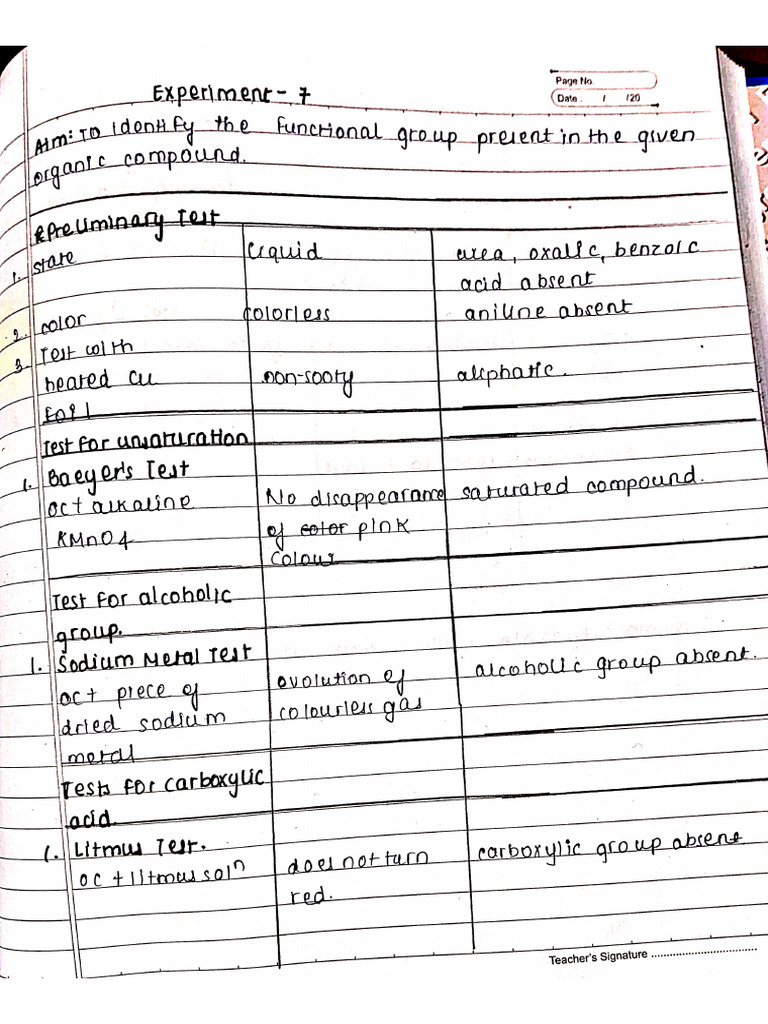 Page No.
Date : / /20
Experiment - 7
Aim: To identify the functional group present in the given
organic compound.
Preliminary Test
1. state Liquid urea, oxalic, benzoic
acid absent
2. color colorless aniline absent
3. Test with
heated Cu non-sooty aliphatic.
foil
Test for unsaturation
1. Baeyer's Test
OC + alkaline No disappearance saturated compound.
KMnO4 of color pink
colour
Test for alcoholic
group.
1. Sodium Metal Test
OC + piece of evolution of alcoholic group absent.
dried sodium colourless gas
metal
Tests for carboxylic
acid.
1. Litmus Test.
OC + litmus soln does not turn carboxylic group absent
red.
Teacher's Signature ................................